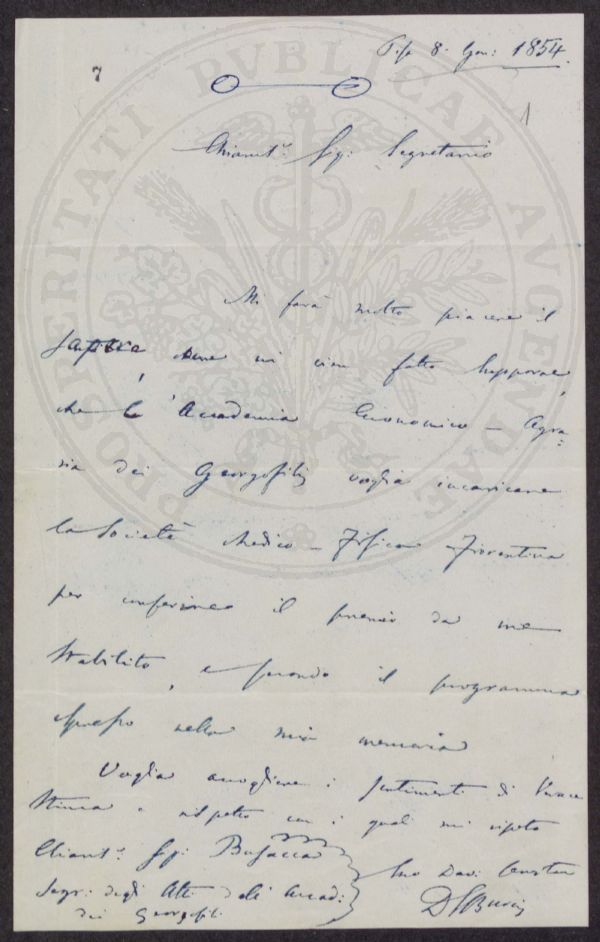 7
Pisa 8. Gen: 1854.
1
Chiarit.º Sig: Segretario
Mi farà molto piacere il
sapere, come mi vien fatto supporre,
che l'Accademia Economico-Agra=
ria dei Georgofili voglia incaricare
la Società Medico-Fisica Fiorentina
per conferire il premio da me
stabilito, e secondo il programma
espresso nella mia memoria
Voglia accogliere i sentimenti di vera
stima e rispetto con i quali mi ripeto
Chiarit.º Sig: Busacca
Suo Dev:
Segr: degli Atti dell'Accad:
dei Georgofili
PROSPERITATI PUBLICAE AUGENDAE